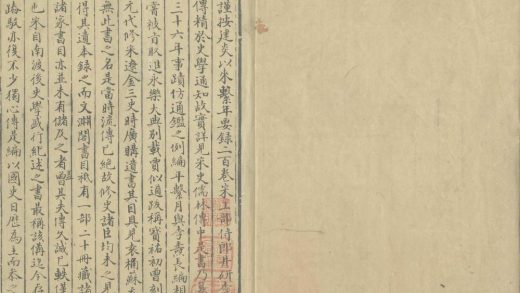 謹按建炎以來繫年要錄二百卷宋工部侍郎井研李
傳精於史學通知故實詳見宋史儒林傳中是書乃
三十六年事蹟仿通鑑之例編年繫月與李燾長編相
嘗被旨取進永樂大典別載賈似道跋稱寶祐初曾刻
元代修宋遼金三史時廣購遺書其目具見袁桷蘇
無此書之名是當時流傳已絕故修史諸臣均未之見
得其遺本錄之而文淵閣書目祇有一部二十冊藏諸
諸家書目亦並未有儲及之者其失傳久誠已軼僅
宋自南渡後史學盛行紀述之書最稱該備迄今存
踳駁亦復不少獨心傳是編以國史日歷為主而參之